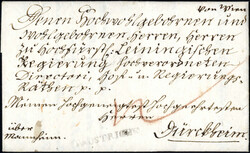 von Wien
Denen Hochwohlgebohrnen und
wohlgebohrnen Herren, Herren
zu Hochfürstl. Leiningischen
Regierung Hochverordneten
Directori, Hof- u. Regierungs
Räthen p. p.
Meinen Hochgeneigtest Hochgeehrtesten
Herren
über
Mannheim.
Dürckheim